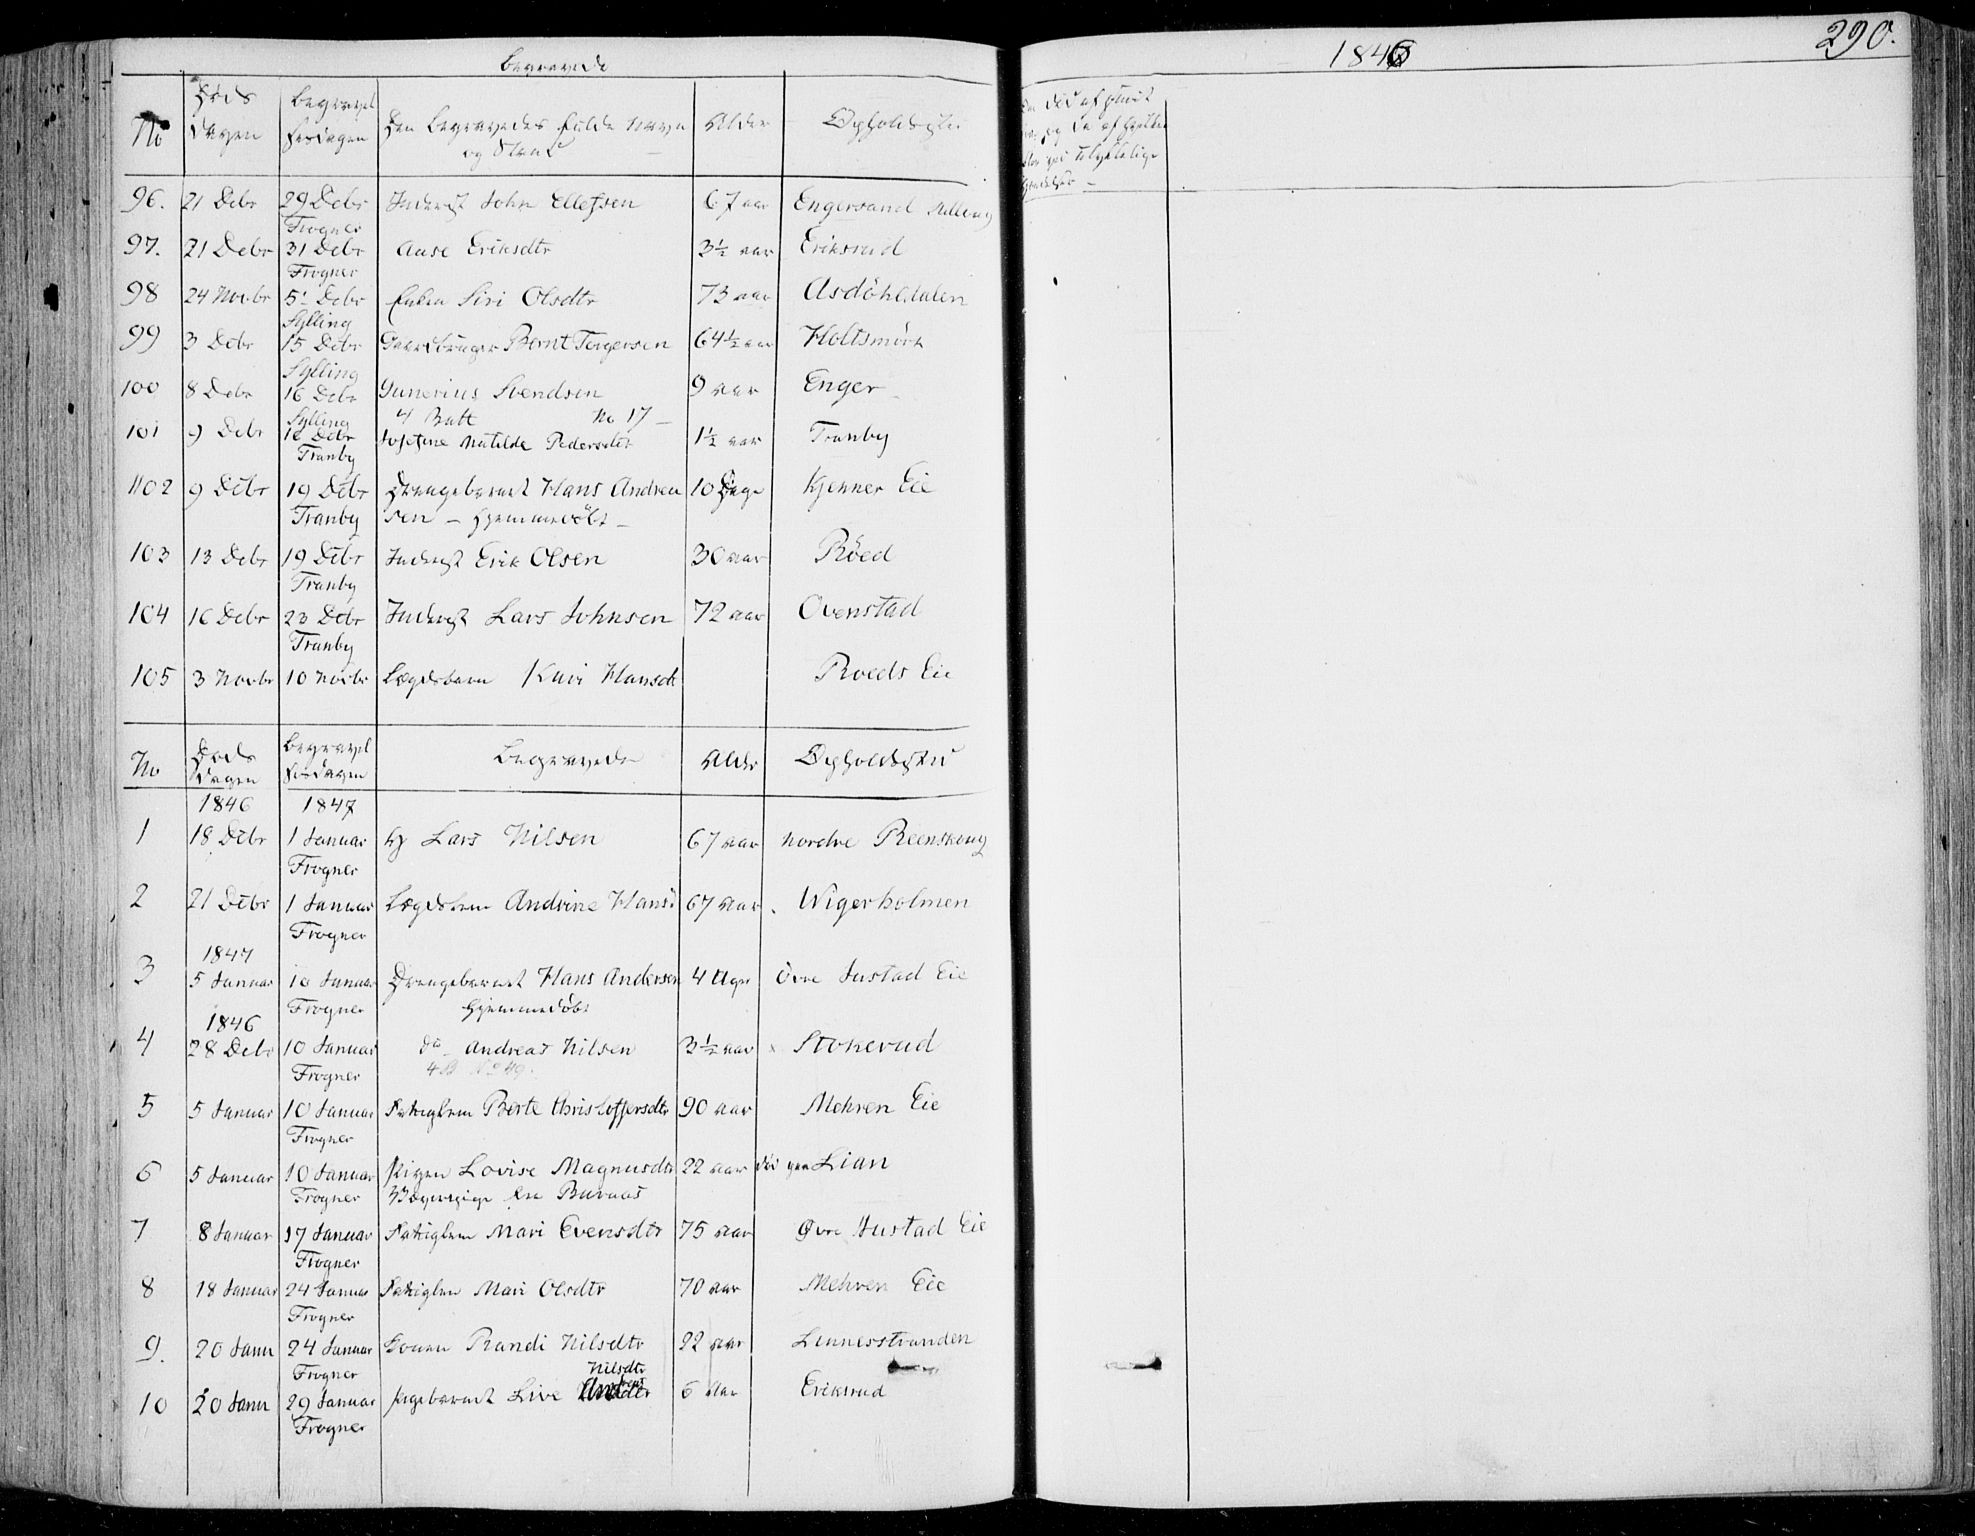 Begravede
1846
290.
No
Døds
Dagen
Begravel
sesdagen
Den Begravedes fulde Navn
og Stand
Alder
Opholdsted
96. 21 Debr 29 Debr Inderst John Ellefsen 67 aar Engersand Hilling
Frogner
97. 21 Debr 31 Debr Aase Eriksdtr 3½ aar Eriksrud
Frogner
98 24 Novbr 5t Debr Enken Siri Olsdtr 73 aar Asdöhldalen
Sylling
99 3 Debr 15 Debr Gaardbruger Bernt Torgersen 64½ aar Holtsmörk
Sylling
100 8 Debr 16 Debr Gunerius Svendsen 9 aar Enger
Sylling 4 Batt No 17 —
101 9 Debr 16 Debr Josefine Matilde Pedersdtr 1½ aar Tranby
Tranby
102 9 Debr 19 Debr Drengebarnet Hans Andrea 10 Dage Kjenner Eie
Tranby sen — Hjemmedöbt —
103 13 Debr 19 Debr Inderst Erik Olsen 30 aar Röed
Tranby
104 16 Debr 23 Debr Inderst Lars Johnsen 72 aar Ovenstad
Tranby
105 3 Novbr 10 Novbr Lægdsbarn Kari Hansdt Roeds Eie
No
Døds
Dagen
Begravel
sesdagen
Begravede
Alder
Opholdsted
1846 1847
1 18 Debr 1 Januar Lars Nilsen 67 aar Nordre Reenskoug
Frogner
2 21 Debr 1 Januar Lægdslem Andrine Hansd 67 aar Wigerholmen
Frogner
1847
3 5 Januar 10 Januar Drengebarnet Hans Andersen 4 Uger Övre Justad Eie
Frogner Hjemmedöbt
1846
4 28 Debr 10 Januar do Andreas Nilsen 3½ aar Stokerud
Frogner 4 B No 49.
5 5 Januar 10 Januar Fattiglem Berte Christoffersdtr 90 aar Mehren Eie
Frogner
6 5 Januar 10 Januar Pigen Lovise Magnusdtr 22 aar död paa Lian
Frogner fra Buraas
7 8 Januar 17 Januar Fattiglem Mari Evensdtr 75 aar Øvre Justad Eie
Frogner
8 18 Januar 24 Januar Fattiglem Mari Olsdtr 70 aar Mehren Eie
Frogner
9. 20 Janu 24 Januar Konen Randi Nilsdtr 22 aar Linnesstranden
Frogner Nilsdtr
10 20 Janu 29 Januar Pigebarnet Live 6 Aar Eriksrud
Frogner